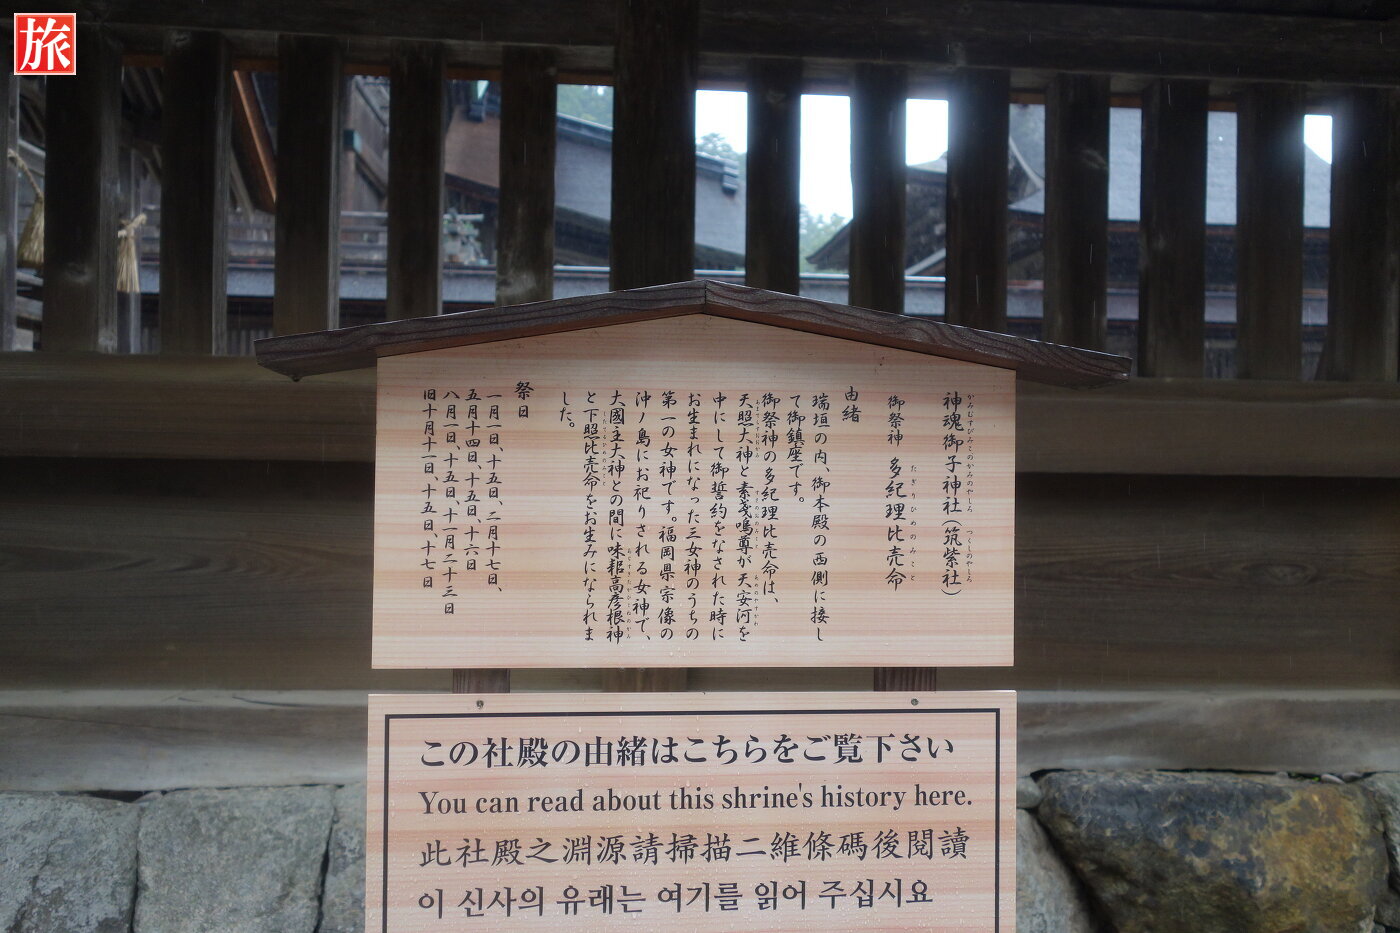 旅
神魂御子神社(筑紫社)
かみむすびみこのかみのやしろ つくしのやしろ
御祭神 多紀理比売命
たぎりひめのみこと
由緒
瑞垣の内、御本殿の西側に接し
て御鎮座です。
御祭神の多紀理比売命は、
天照大神と素戔嗚尊が天安河を
中にして御誓約をなされた時に
お生まれになった三女神のうちの
第一の女神です。福岡県宗像の
沖ノ島にお祀りされる女神で、
大國主大神との間に味耜高彦根神
と下照比売命をお生みになられま
した。
祭日
一月一日、十五日、二月十七日、
五月十四日、十五日、十六日
八月一日、十五日、十一月二十三日
旧十月十一日、十五日、十七日
この社殿の由緒はこちらをご覧下さい
You can read about this shrine's history here.
此社殿之淵源請掃描二維條碼後閱讀
이 신사의 유래는 여기를 읽어 주십시요